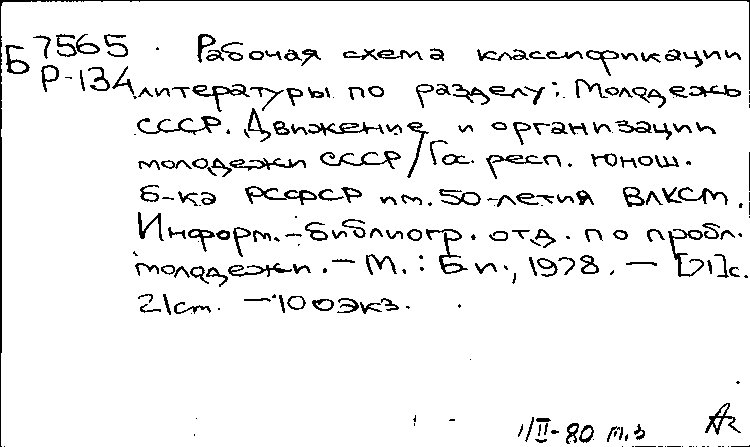 Б 7565 Рабочая схема классификации
Р-134 литературы по разделу: Молодежь
СССР. Движение и организации
молодежи СССР/Гос. респ. юнош.
б-ка РСФСР им. 50-летия ВЛКСМ.
Информ.-библиогр. отд. по пробл.
молодежи. - М.: Б и., 1978. - [21]с.
21см. - 100экз.
1/II-80 т.з